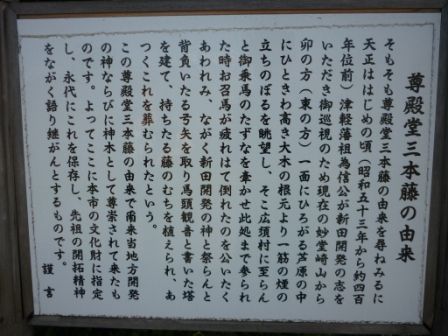 尊殿堂三本藤の由来
そもそも尊殿堂三本藤の由来を尋ねみるに
天正ははじめの頃(昭和五十三年から約四百
年位前)津軽藩祖為信公が新田開発の志を
いただき御巡視のため現在の妙堂崎山から
卯の方(東の方)一面にひろがる芦原の中
にひときわ高き大木の根元より一筋の煙の
立ちのぼるを眺望し、そこ広須村に至らん
と御乗馬のたずなを牽かせ此処まで参られ
た時お召馬が疲れはて倒れたのを公いたく
あわれみ、ながく新田開発の神と祭らんと
背負いたる弓矢を取り馬頭観音と書いた塔
を建て、持ちたる藤のむちを植えられ、あ
つくこれを葬むられたという。
この尊殿堂三本藤の由来で爾来当地方開発
の神ならびに神木として尊崇されて来たも
のです。よってここに本市の文化財に指定
し、永代にこれを保存し、先祖の開拓精神
をながく語り継がんとするものです。
謹言